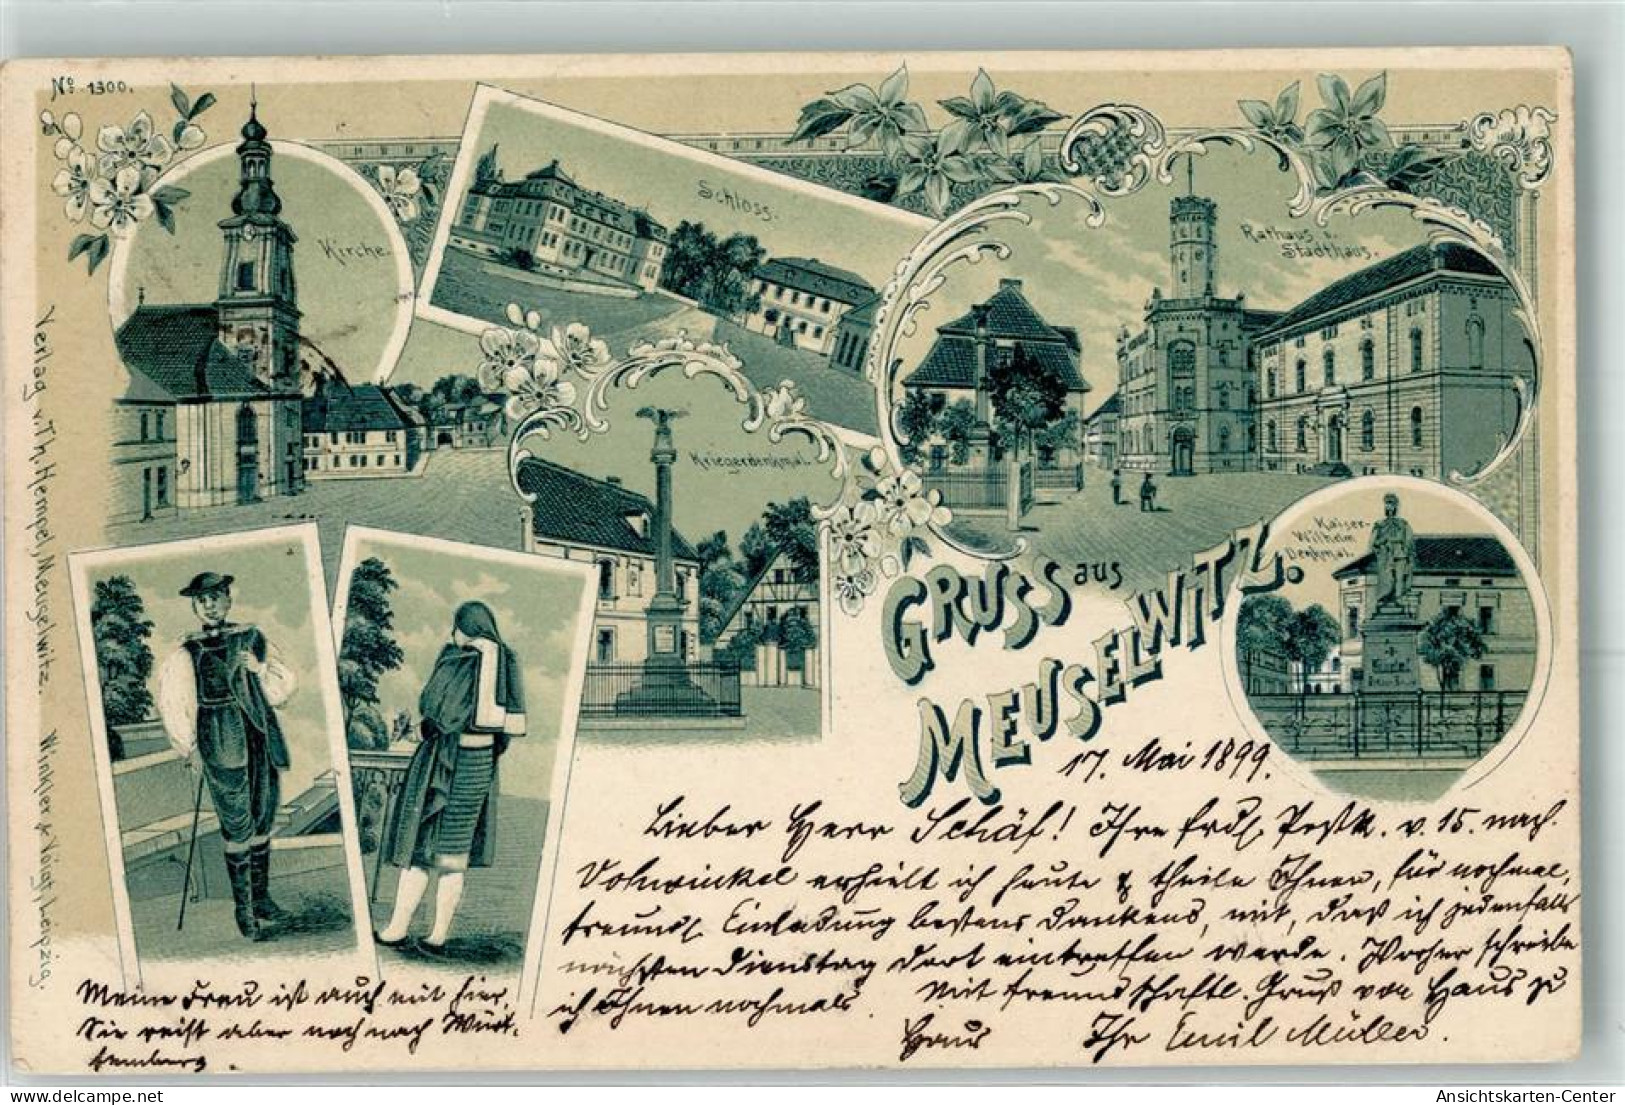 No. 1300.
Kirche.
Schloss.
Rathaus u.
Stadthaus.
Kriegerdenkmal.
Kaiser-
Wilhelm
Denkmal.
GRUSS aus
MEUSELWITZ.
Verlag v. Th. Hempel, Meuselwitz. Winkler & Voigt, Leipzig.
17. Mai 1899.
Lieber Herr Schäf! Ihre frdl. Postk. v. 15. nach
Vohwinkel erhielt ich heute & theile Ihnen, für nochmal.
freundl. Einladung bestens dankend, mit, daß ich jedenfalls
nächsten Dienstag dort eintreffen werde. Vorher schreibe
ich Ihnen nochmals. Mit freundschaftl. Gruß von Haus zu
Haus Ihr Emil Müller.
Meine Frau ist auch mit hier,
Sie reist aber noch nach Würt-
temberg.
Ansichtskarten-Center